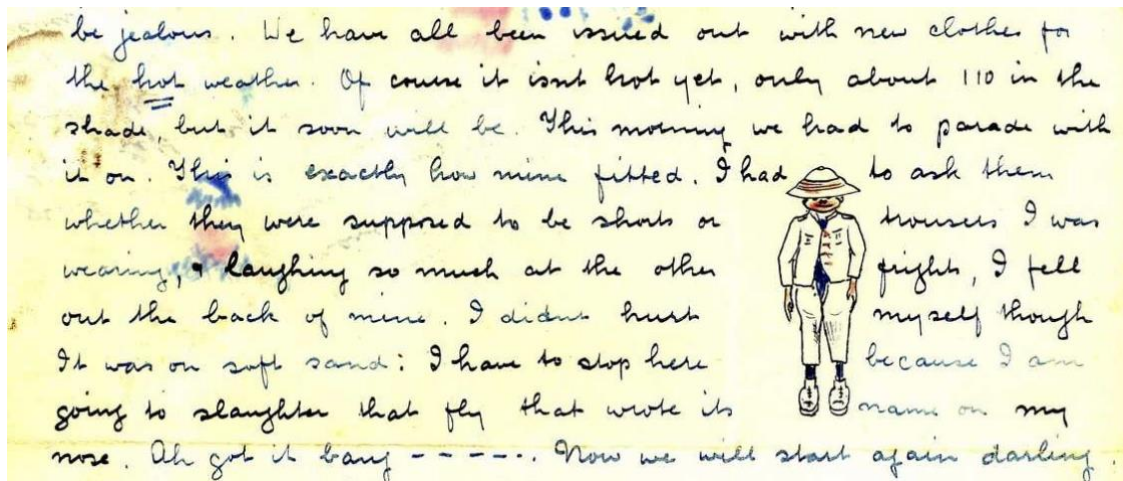 be jealous. We have all been issued out with new clothes for
the hot weather. Of course it isnt hot yet, only about 110 in the
shade, but it soon will be. This morning we had to parade with
it on. This is exactly how mine fitted. I had to ask them
whether they were supposed to be shorts or trousers I was
wearing, & laughing so much at the other frights, I fell
out the back of mine. I didnt hurt myself though
It was on soft sand: I have to stop here because I am
going to slaughter that fly that wrote its name on my
nose. Ah got it bang - - - - -. Now we will start again darling.